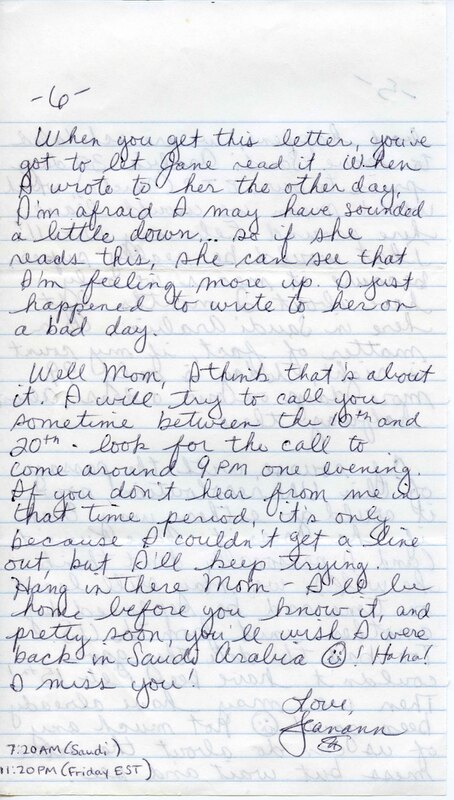 -6-
When you get this letter, you've
got to let Jane read it. When
I wrote to her the other day,
I'm afraid I may have sounded
a little down... so if she
reads this, she can see that
I'm feeling more up. I just
happened to write to her on
a bad day.
Well Mom, I think that's about
it. I will try to call you
sometime between the 10th and
20th - look for the call to
come around 9 PM one evening.
If you don't hear from me in
that time period, it's only
because I couldn't get a line
out, but I'll keep trying.
Hang in There Mom - I'll be
home before you know it, and
pretty soon you'll wish I were
back in Saudi Arabia ☺! Haha!
I miss you!
Love,
Jeanann
7:20AM (Saudi)
11:20PM (Friday EST)